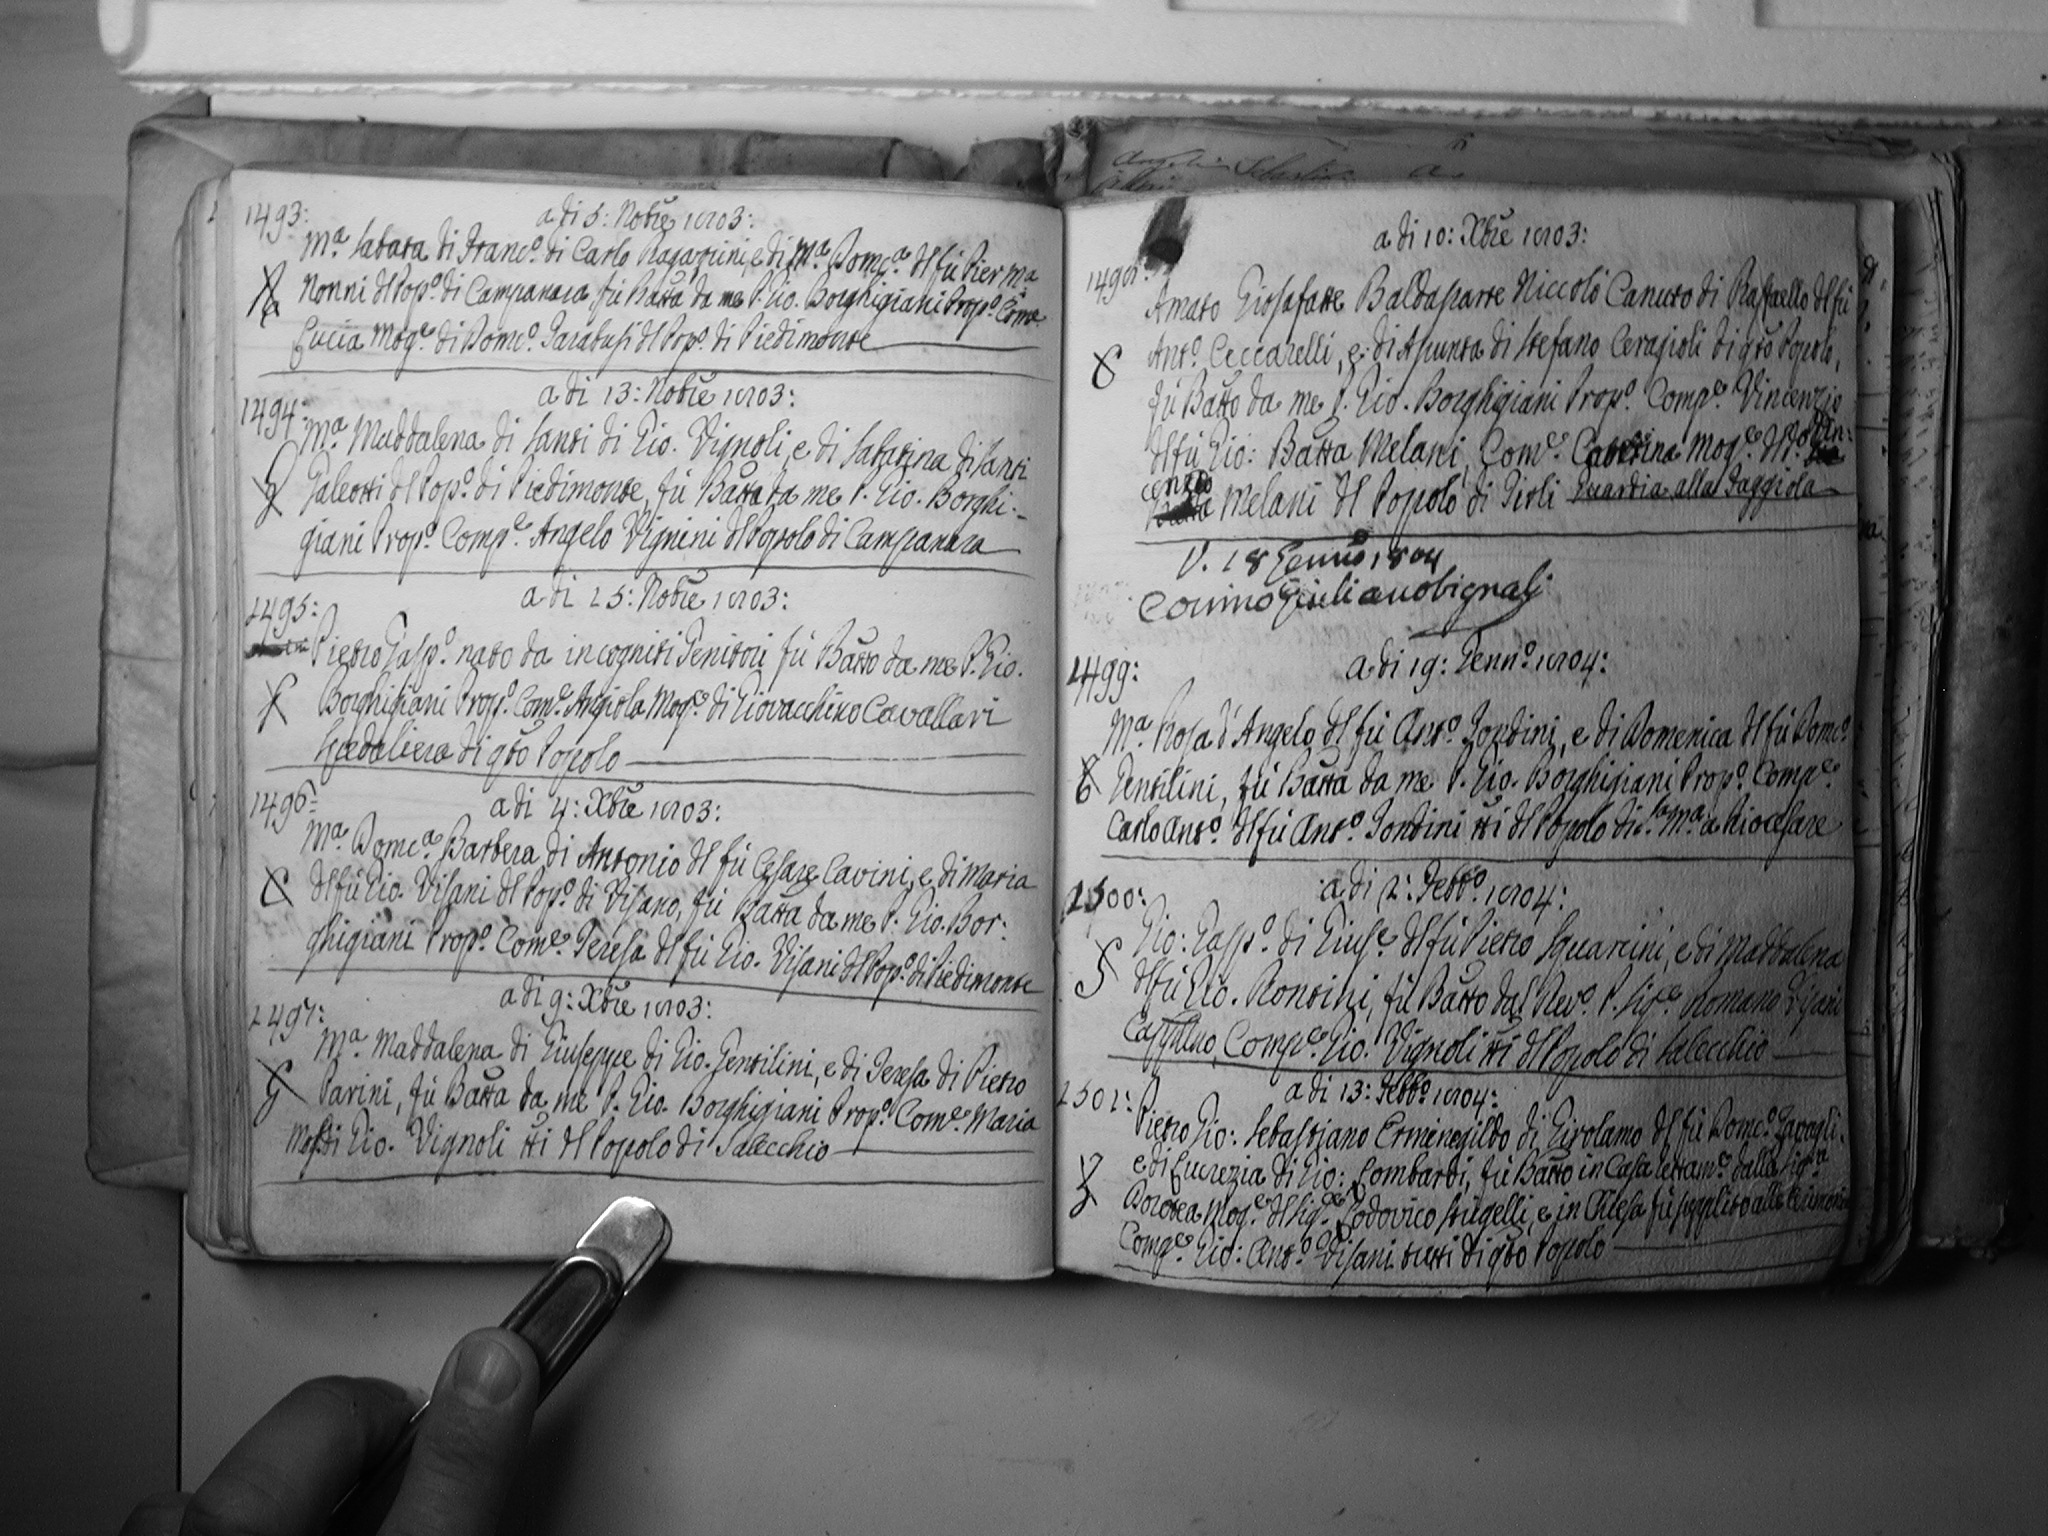 1493:
a di 5: Nobre 1803:
Ma. Sabata di Franco. di Carlo Ragazzini, e di Ma. Domca. del fù Pier Ma
Nonni del Popo. di Campanara fù Batta da me P. Gio. Borghigiani Propo. Come
Lucia Moge. di Domco. Sarabusi del Popo. di Piedimonte
1494:
a di 13: Nobre 1803:
Ma. Maddalena di Santi di Gio. Vignoli, e di Sabatina di Santi
Galeotti del Popo. di Piedimonte, fù Batta da me P. Gio. Borghi-
giani Propo. Compe. Angelo Vignini del Popolo di Campanara
1495:
a di 25: Nobre 1803:
Pietro Gaspo. nato da incogniti Genitori fù Batto da me P. Gio.
Borghigiani Propo. Come. Angiola Moge. di Giovacchino Cavallari
Spedaliera di qto Popolo
1496:
a di 4: Xbre 1803:
Ma. Domca. Barbera di Antonio del fù Cesare Cavini, e di Maria
del fù Gio. Visani del Popo. di Visano, fù Batta da me P. Gio. Bor:
ghigiani Propo. Come. Teresa del fù Gio. Visani del Popo. di Piedimonte
1497:
a di 9: Xbre 1803:
Ma. Maddalena di Giuseppe di Gio. Gentilini, e di Teresa di Pietro
Parini, fù Batta da me P. Gio. Borghigiani Propo. Come. Maria
Mog. di Gio. Vignoli tti del Popolo di Salecchio
a di 10: Xbre 1803:
1498:
Amato Giosafatte Baldasarre Niccolò Canuto di Raffaello del fù
Anto. Ceccarelli, e di Asunta di Stefano Ceragioli di qto Popolo,
fù Batto da me P. Gio. Borghigiani Propo. Compe. Vincenzio
del fù Gio: Batta Melani, Come. Caterina Moge. di do. Vin:
cenzio Melani del Popolo di Tirli Guardia alla Faggiola
V. 18 Genno 1804
Cosimo Giuliano Bignali
1499:
a di 19: Genno. 1804:
Ma. Rosa d'Angelo del fù Anto. Tondini, e di Domenica del fù Domco.
Gentilini, fù Batta da me P. Gio. Borghigiani Propo. Compe.
Carlo Anto. del fù Anto. Tondini tti del Popolo di Sa. Ma. a Riocesare
1500:
a di 2: Febbo. 1804:
Gio: Gaspo. di Giuse. del fù Pietro Squarcini, e di Maddalena
del fù Gio. Rontini, fù Batto dal Revo. P. Sige. Romano Visani
Cappllano, Compe. Gio. Vignoli tti del Popolo di Salecchio
1501:
a di 13: Febbo. 1804:
Pietro Gio: Sebastiano Ermenegildo di Girolamo del fù Domco. Zavagli.
e di Lucrezia di Gio: Lombardi, fù Batto in Casa dalla Siga.
Dorotea Moge. del Sige. Lodovico Strigelli, e in Chiesa fù supplito alle Cerimonie
Compe. Gio: Anto. Visani tutti di qto Popolo